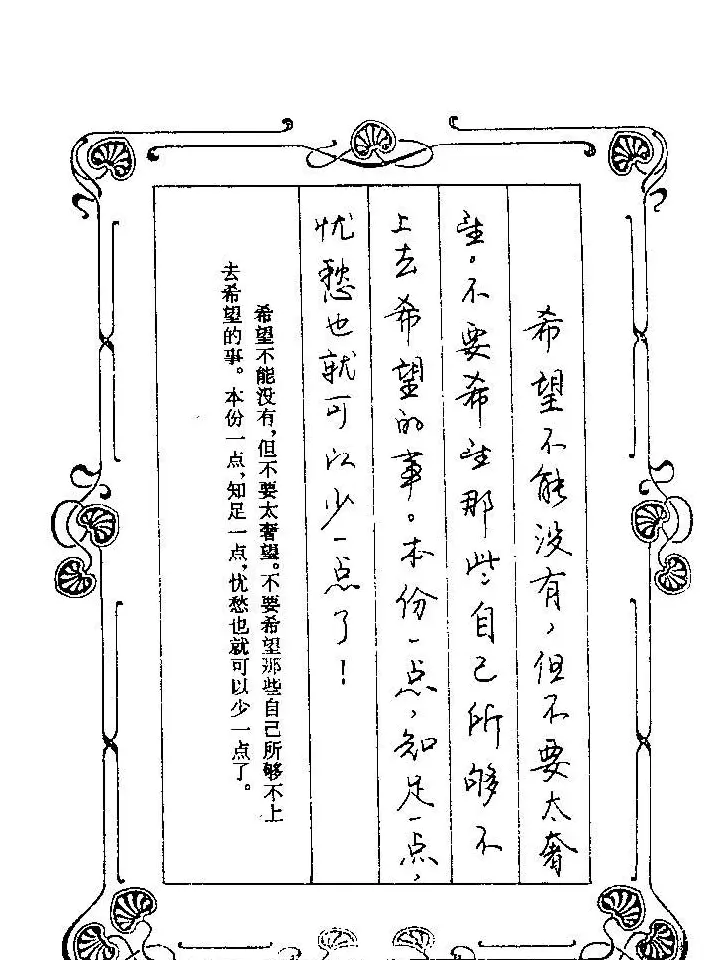 希望不能没有，但不要太奢
望。不要希望那些自己所够不
上去希望的事。本份一点，知足一点，
忧愁也就可以少一点了！
希望不能没有，但不要太奢望。不要希望那些自己所够不上
去希望的事。本份一点，知足一点，忧愁也就可以少一点了。